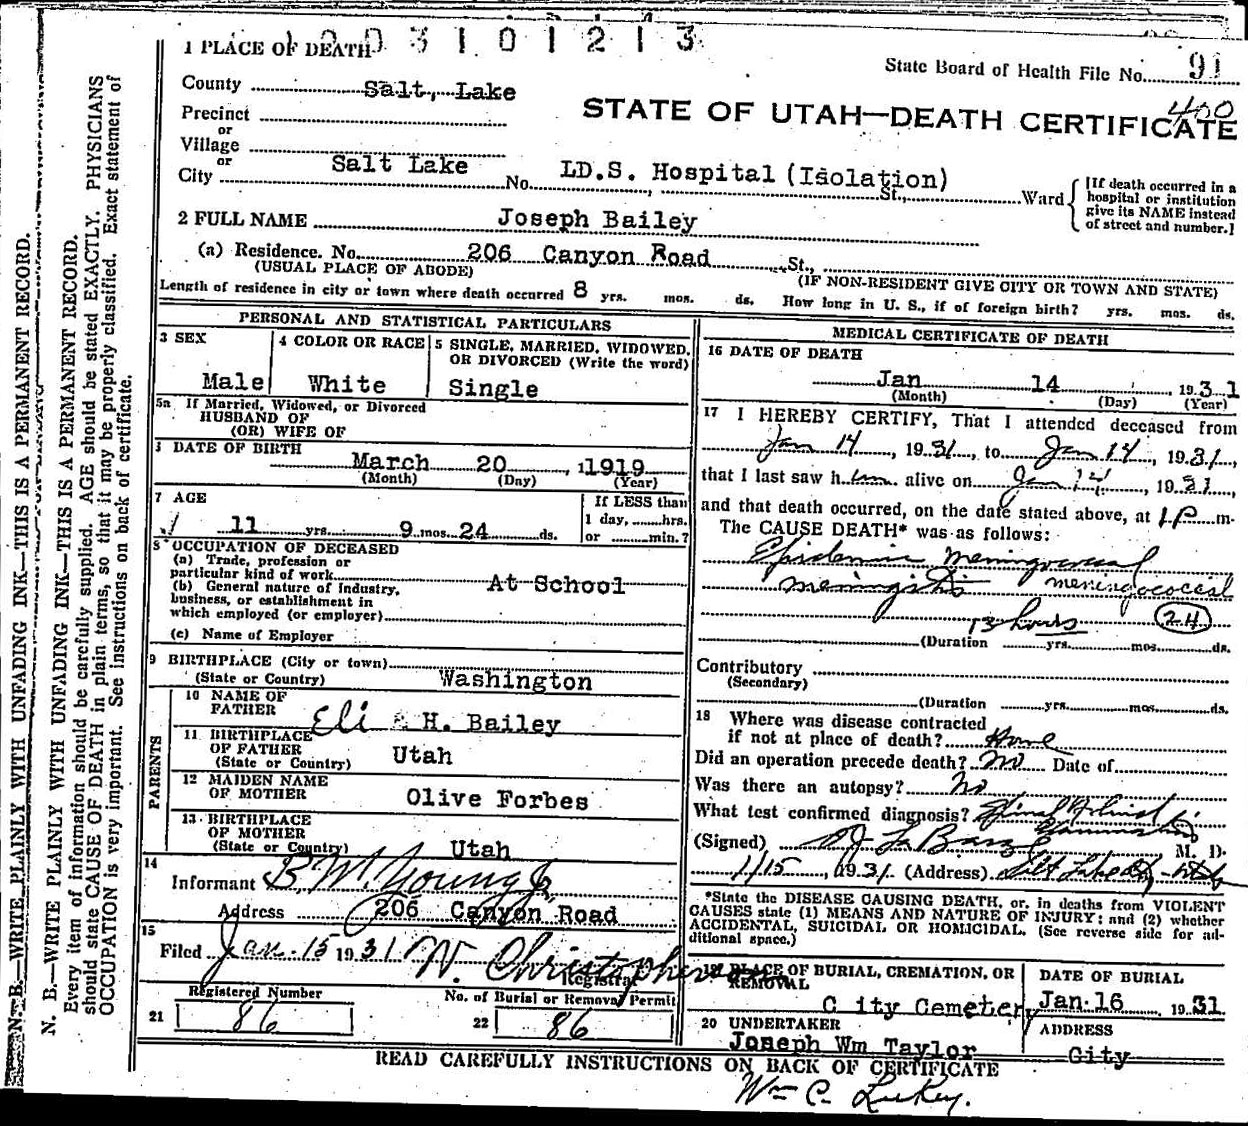 1 2 0 3 1 0 1 2 1 3
1 PLACE OF DEATH
State Board of Health File No. 91
County Salt, Lake
400
STATE OF UTAH—DEATH CERTIFICATE
Precinct
or
Village
or
City Salt Lake No. LD.S. Hospital (Isolation) St., Ward
[If death occurred in a
hospital or institution
give its NAME instead
of street and number.]
2 FULL NAME Joseph Bailey
(a) Residence. No. 206 Canyon Road St.,
(USUAL PLACE OF ABODE) (IF NON-RESIDENT GIVE CITY OR TOWN AND STATE)
Length of residence in city or town where death occurred 8 yrs. mos. ds. How long in U. S., if of foreign birth? yrs. mos. ds.
PERSONAL AND STATISTICAL PARTICULARS
3 SEX
Male
4 COLOR OR RACE
White
5 SINGLE, MARRIED, WIDOWED,
OR DIVORCED (Write the word)
Single
5a If Married, Widowed, or Divorced
HUSBAND OF
(OR) WIFE OF
DATE OF BIRTH
March 20, 1919
(Month) (Day) (Year)
7 AGE
11 yrs. 9 mos. 24 ds.
If LESS than
1 day, hrs.
or min.?
8 OCCUPATION OF DECEASED
(a) Trade, profession or
particular kind of work
At School
(b) General nature of Industry,
business, or establishment in
which employed (or employer)
(c) Name of Employer
9 BIRTHPLACE (City or town)
(State or Country) Washington
PARENTS
10 NAME OF
FATHER Eli H. Bailey
11 BIRTHPLACE
OF FATHER
(State or Country) Utah
12 MAIDEN NAME
OF MOTHER Olive Forbes
13 BIRTHPLACE
OF MOTHER
(State or Country) Utah
14
Informant B. W. Young Jr.
Address 206 Canyon Road
15
Filed Jan. 15 1931 W. Christopherson
Registrar
Registered Number
21 86
No. of Burial or Removal Permit
22 86
MEDICAL CERTIFICATE OF DEATH
16 DATE OF DEATH
Jan 14 1931
(Month) (Day) (Year)
17 I HEREBY CERTIFY, That I attended deceased from
Jan 14, 1931, to Jan 14, 1931,
that I last saw him alive on Jan 14, 1931,
and that death occurred, on the date stated above, at 1 P m.
The CAUSE DEATH* was as follows:
Epidemic meningococcal
meningitis meningococcal
13 hours 24
(Duration yrs. mos. ds.
Contributory
(Secondary)
(Duration yrs. mos. ds.
18 Where was disease contracted
if not at place of death? Home
Did an operation precede death? No Date of
Was there an autopsy? No
What test confirmed diagnosis? Spinal
(Signed) M. D.
1/15, 1931 (Address) Salt Lake City Utah
*State the DISEASE CAUSING DEATH, or, in deaths from VIOLENT
CAUSES state (1) MEANS AND NATURE OF INJURY; and (2) whether
ACCIDENTAL, SUICIDAL OR HOMICIDAL. (See reverse side for ad-
ditional space.)
19 PLACE OF BURIAL, CREMATION, OR
REMOVAL
City Cemetery
DATE OF BURIAL
Jan. 16 1931
20 UNDERTAKER
Joseph Wm Taylor
ADDRESS
City
READ CAREFULLY INSTRUCTIONS ON BACK OF CERTIFICATE
Wm C.
N. B.—WRITE PLAINLY WITH UNFADING INK—THIS IS A PERMANENT RECORD.
N. B.—WRITE PLAINLY WITH UNFADING INK—THIS IS A PERMANENT RECORD.
Every item of information should be carefully supplied. AGE should be stated EXACTLY. PHYSICIANS
should state CAUSE OF DEATH in plain terms, so that it may be properly classified. Exact statement of
OCCUPATION is very important. See instructions on back of certificate.